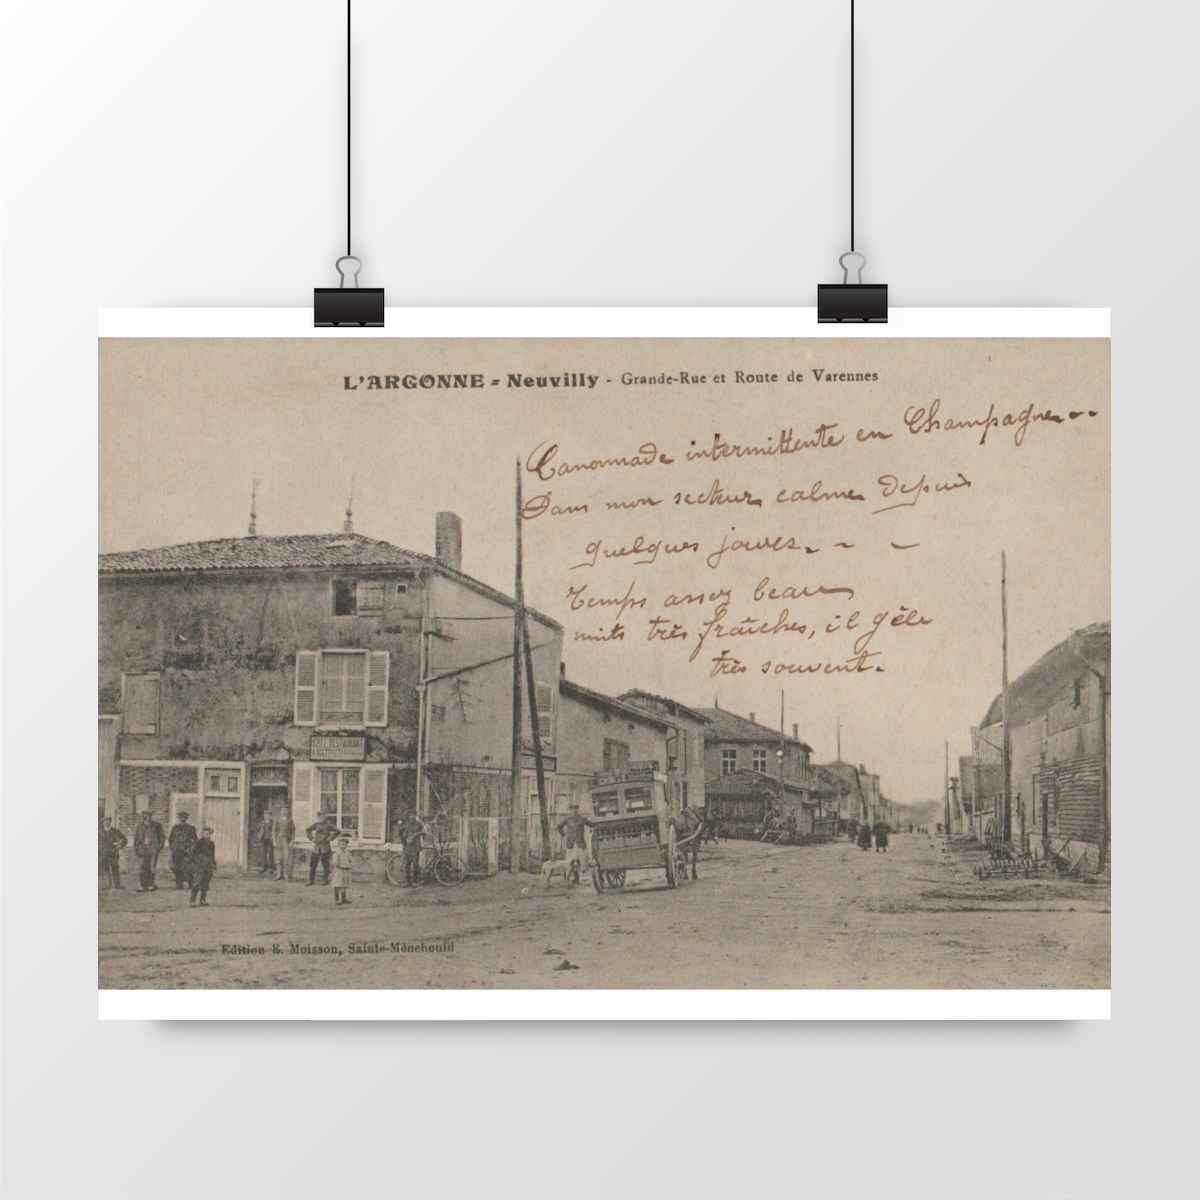 L'ARGONNE - Neuvilly - Grande-Rue et Route de Varennes
Canonnade intermittente en Champagne - -
Dans mon secteur calme depuis
quelques jours. - -
Temps assez beau
nuits très fraîches, il gèle
très souvent.
CAFE RESTAURANT
Edition E. Moisson, Sainte-Ménehould